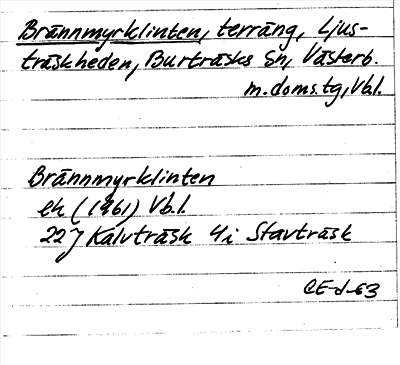 Brännmyrklinten, terräng, Ljus-
träskheden, Burträsks Sn, Västerb.
m.doms.tg, Vb.l.
Brännmyrklinten
ek (1961) Vb.l.
22J Kalvträsk 4i Stavträsk
CE-d-63